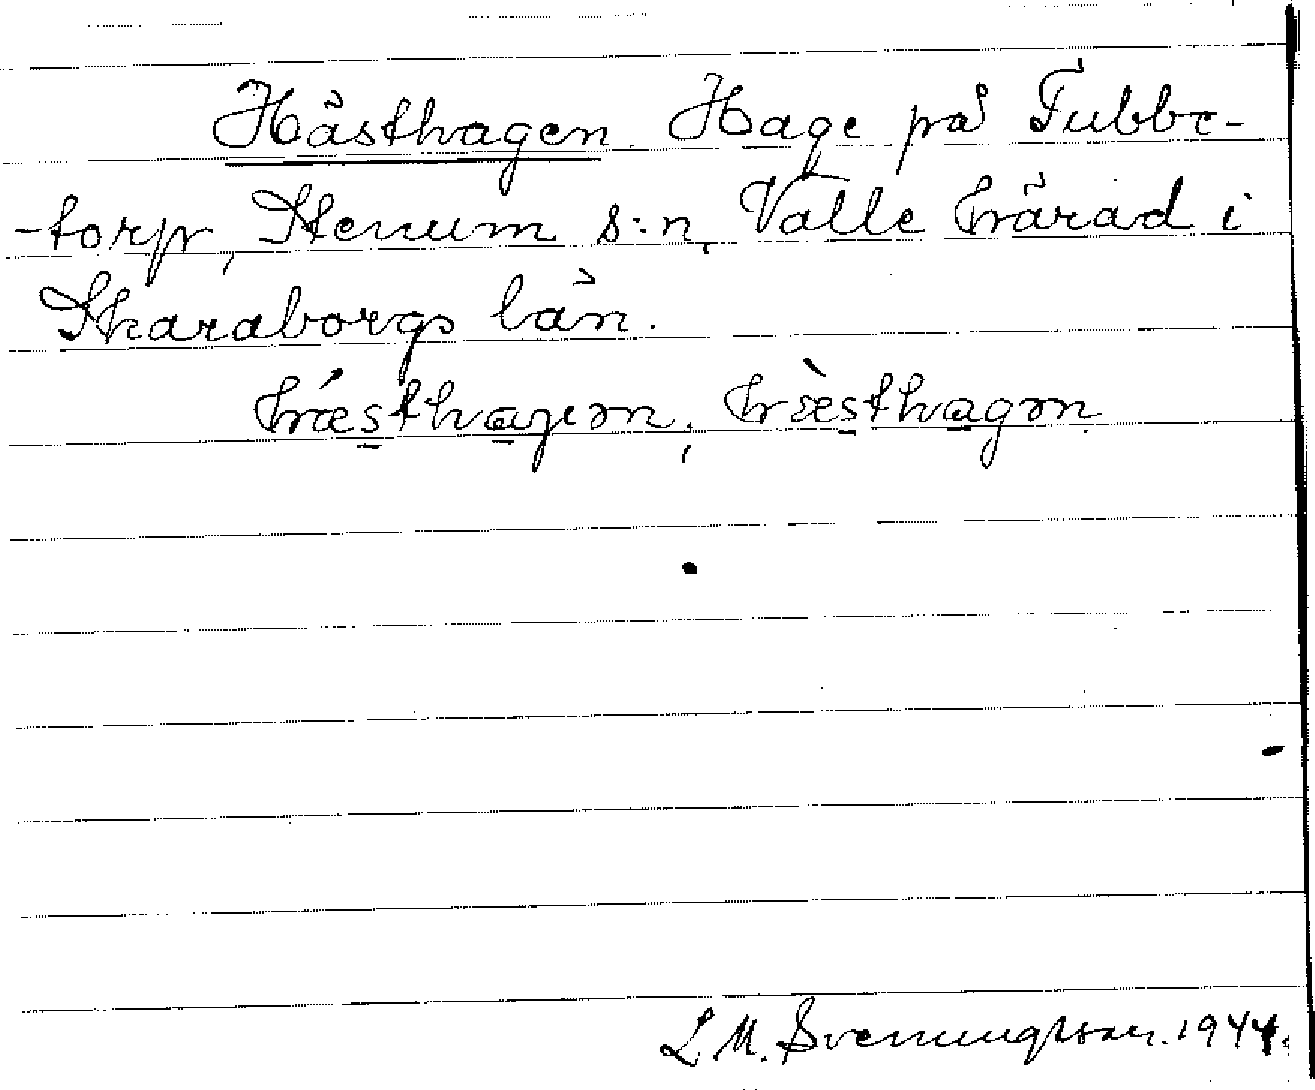 Hästhagen. Hage på Tubbe-
-torp, Stenum s:n, Valle härad i
Skaraborgs län.
hǽsthaɡen; hæ̀sthagən
L. M. Svenungsson. 1944.